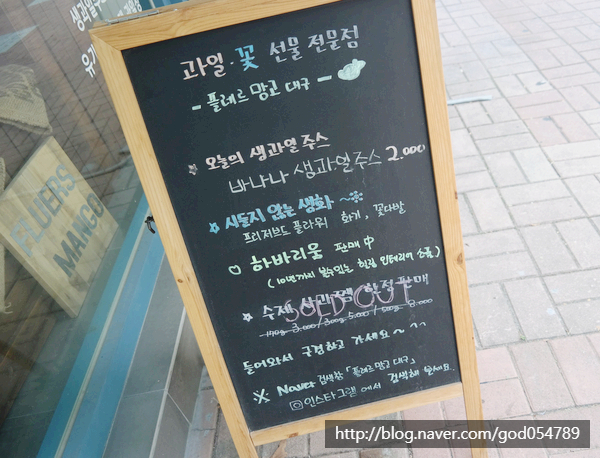 생과일주스
유기
FLYERS
MANGO
과일·꽃 선물 전문점
- 플레르 망고 대구 -
오늘의 생과일 주스
바나나 생과일주스 2.000
시들지 않는 생화 ~
프리저브드 플라워 화기, 꽃다발
하바리움 판매 中
(10년까지 볼수있는 힐링 인테리어 소품)
수제 사과잼 한정 판매
SOLD OUT
3.000 / 300g 5.000 / 500g 8.000
들어와서 구경하고 가세요~ ^^
※ Naver 검색창 「플레르 망고 대구」
인스타그램 에서 검색해 보세요.
http://blog.naver.com/god054789